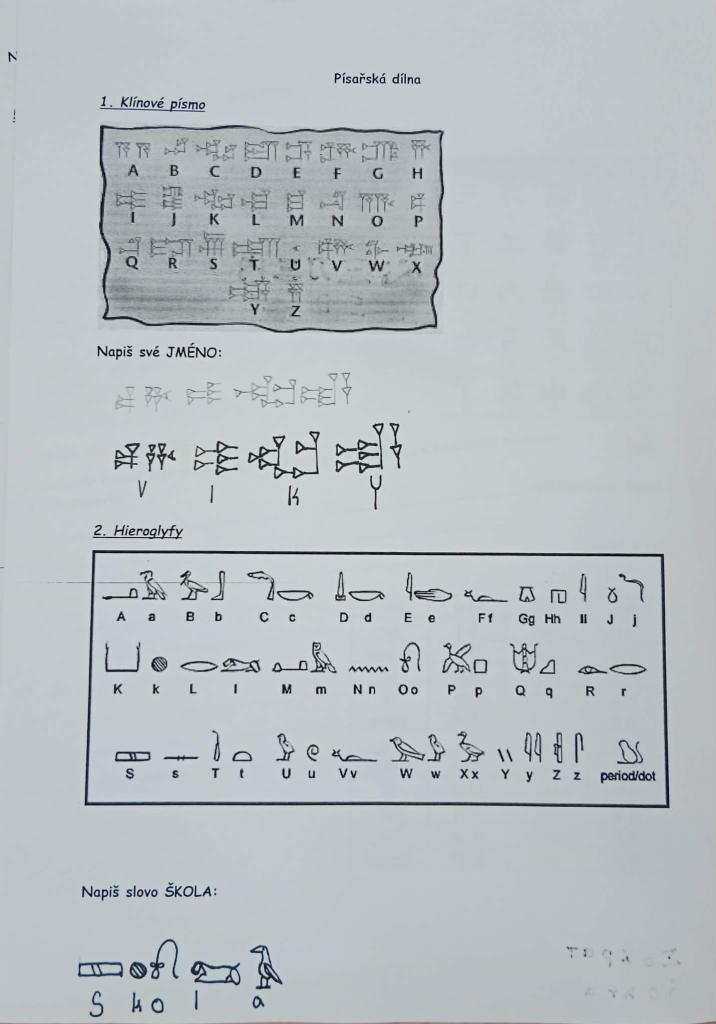 Písařská dílna
1. Klínové písmo
A B C D E F G H
I J K L M N O P
Q R S T U V W X
Y Z
Napiš své JMÉNO:
V I K Y
2. Hieroglyfy
A a B b C c D d E e Ff Gg Hh Ii J j
K k L l M m Nn Oo P p Q q R r
S s T t U u Vv W w Xx Y y Z z period/dot
Napiš slovo ŠKOLA:
S k o l a